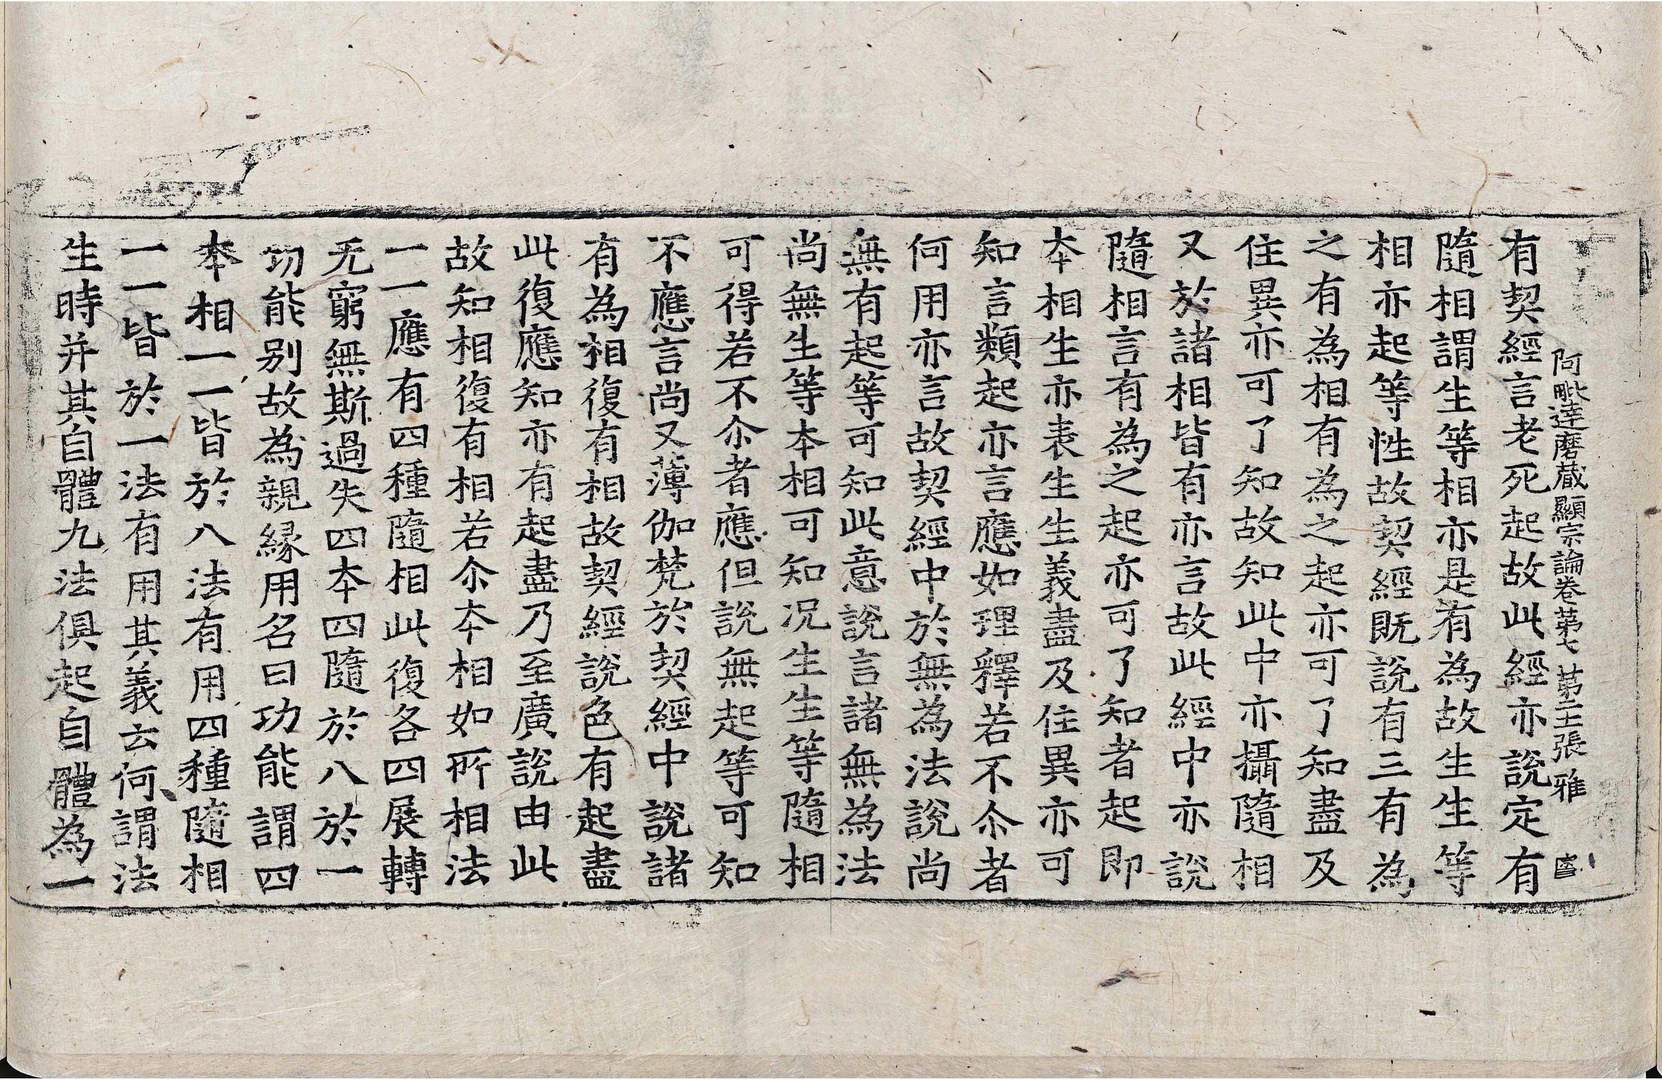 阿毗達磨蔵顯宗論卷苐七 苐二十張 雅
有契經言老死起故此經亦說定有
隨相謂生等相亦是有為故生生等
相亦起等性故契經既說有三有為
之有為相有為之起亦可了知盡及
住異亦可了知故知此中亦攝隨相
又於諸相皆有亦言故此經中亦說
隨相言有為之起亦可了知者起即
夲相生亦表生生義盡及住異亦可
知言類起亦言應如理釋若不尒者
何用亦言故契經中於無為法說尚
無有起等可知此意說言諸無為法
尚無生等夲相可知况生生等隨相
可得若不尒者應但說無起等可知
不應言尚又薄伽梵於契經中說諸
有為相復有相故契經說色有起盡
此復應知亦有起盡乃至廣說由此
故知相復有相若尒夲相如所相法
一一應有四種隨相此復各四展轉
无窮無斯過失四夲四隨於八於一
功能别故為親縁用名曰功能謂四
夲相一一皆於八法有用四種隨相
一一皆於一法有用其義云何謂法
生時并其自體九法俱起自體為一